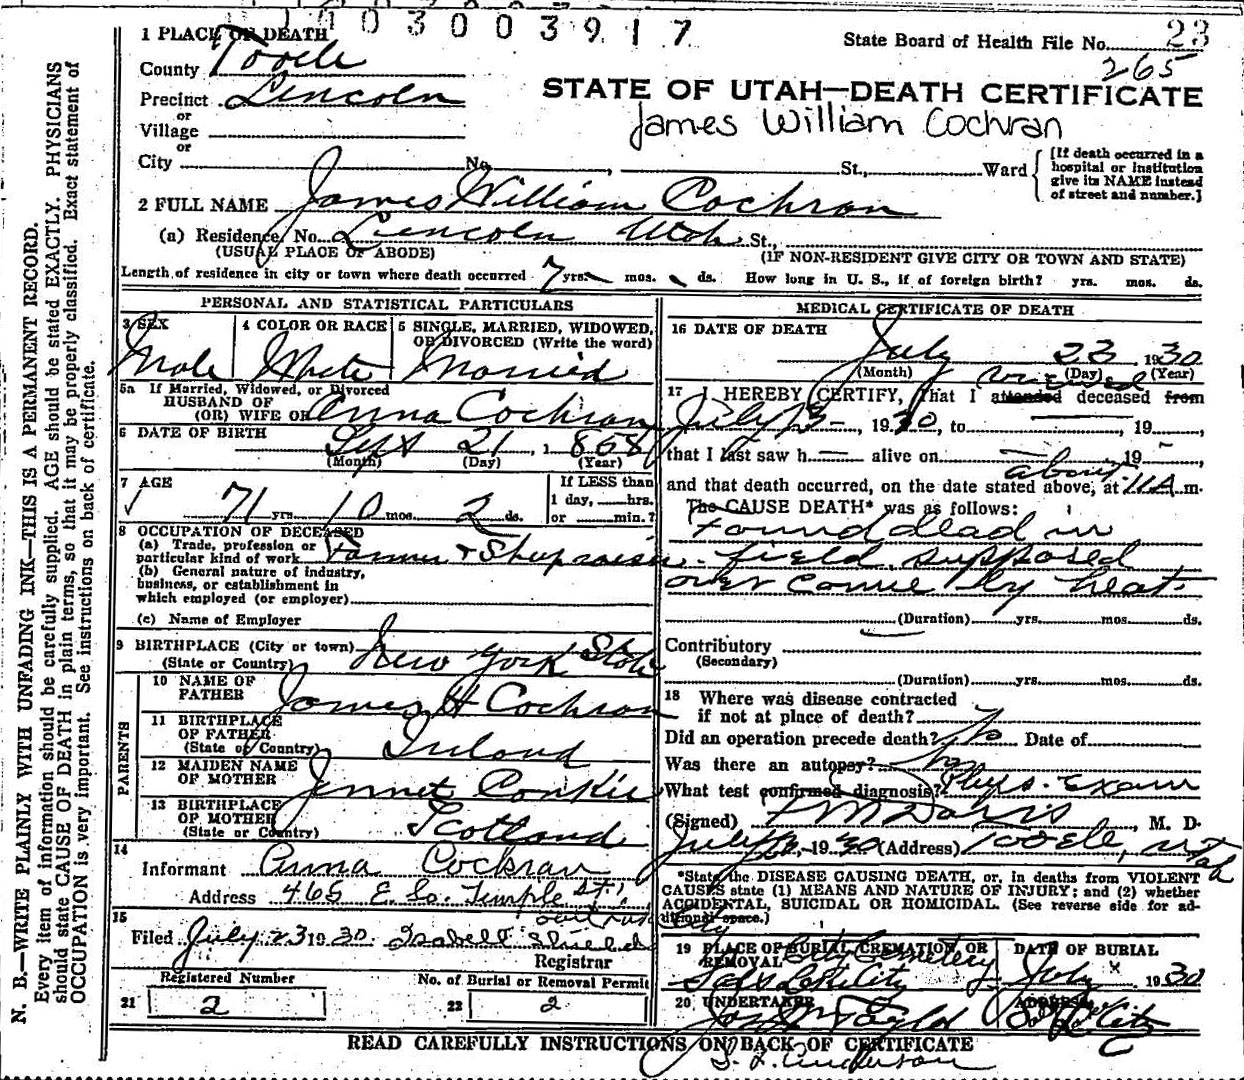 1003003917
1 PLACE OF DEATH
State Board of Health File No. 23
County Tooele
265
Precinct Lincoln
STATE OF UTAH—DEATH CERTIFICATE
or
Village
James William Cochran
or
City No. , St., Ward
[If death occurred in a hospital or institution give its NAME instead of street and number.]
2 FULL NAME James William Cochran
(a) Residence, No. Lincoln Utah St.,
(USUAL PLACE OF ABODE) (IF NON-RESIDENT GIVE CITY OR TOWN AND STATE)
Length of residence in city or town where death occurred 7 yrs. mos. ds. How long in U. S., if of foreign birth? yrs. mos. ds.
PERSONAL AND STATISTICAL PARTICULARS
3 SEX 4 COLOR OR RACE 5 SINGLE, MARRIED, WIDOWED, OR DIVORCED (Write the word)
Male White Married
5a If Married, Widowed, or Divorced
HUSBAND OF
(OR) WIFE OF Anna Cochran
6 DATE OF BIRTH Sept 21, 1868
(Month) (Day) (Year)
7 AGE If LESS than
1 day, hrs.
71 yrs. 10 mos. 2 ds. or min.?
8 OCCUPATION OF DECEASED
(a) Trade, profession or
particular kind of work Farmer &
(b) General nature of industry,
business, or establishment in
which employed (or employer)
(c) Name of Employer
9 BIRTHPLACE (City or town)
(State or Country) New York State
PARENTS
10 NAME OF
FATHER James H Cochran
11 BIRTHPLACE
OF FATHER
(State or Country) Ireland
12 MAIDEN NAME
OF MOTHER Jennet Conkie
13 BIRTHPLACE
OF MOTHER
(State or Country) Scotland
14
Informant Anna Cochran
Address 465 E. So. Temple St.
15
Filed July 23 1930 Isabell
Registrar
Registered Number No. of Burial or Removal Permit
21 2 22 2
MEDICAL CERTIFICATE OF DEATH
16 DATE OF DEATH
July 23 1930
(Month) (Day) (Year)
viewed
17 I HEREBY CERTIFY, That I attended deceased from
July 23 – , 1930, to , 19 ,
that I last saw h alive on 19 ,
about
and that death occurred, on the date stated above, at 11 A m.
The CAUSE DEATH* was as follows:
Found dead in
field supposed
over come by heat.
(Duration) yrs. mos. ds.
Contributory
(Secondary)
(Duration) yrs. mos. ds.
18 Where was disease contracted
if not at place of death?
Did an operation precede death? No Date of
Was there an autopsy? No
What test confirmed diagnosis? Phys. Exam
(Signed) Davis , M. D.
July , 1930 (Address) Tooele, Utah
*State the DISEASE CAUSING DEATH, or, in deaths from VIOLENT
CAUSES state (1) MEANS AND NATURE OF INJURY; and (2) whether
ACCIDENTAL, SUICIDAL OR HOMICIDAL. (See reverse side for ad-
ditional space.)
19 PLACE OF BURIAL, CREMATION, OR REMOVAL DATE OF BURIAL
City Cemetery
Salt Lake City July 1930
20 UNDERTAKER ADDRESS
Taylor Salt Lake City
READ CAREFULLY INSTRUCTIONS ON BACK OF CERTIFICATE
S. L. Anderson
N. B.—WRITE PLAINLY WITH UNFADING INK—THIS IS A PERMANENT RECORD.
Every item of information should be carefully supplied. AGE should be stated EXACTLY. PHYSICIANS
should state CAUSE OF DEATH in plain terms, so that it may be properly classified. Exact statement of
OCCUPATION is very important. See instructions on back of certificate.